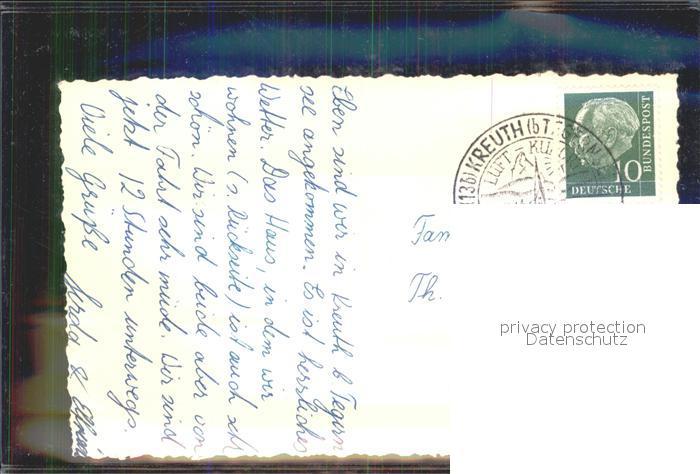 Eben sind wir in Kreuth b Tegern
see angekommen. Es ist herrliches
Wetter. Das Haus, in dem wir
wohnen (s. Rückseite) ist auch sehr
schön. Wir sind beide aber von
der Fahrt sehr müde. Wir sind
jetzt 12 Stunden unterwegs.
Viele Grüße
Fam
Th.
(13b) KREUTH (b. T
LUFT-KU
10
DEUTSCHE
BUNDESPOST
privacy protection
Datenschutz